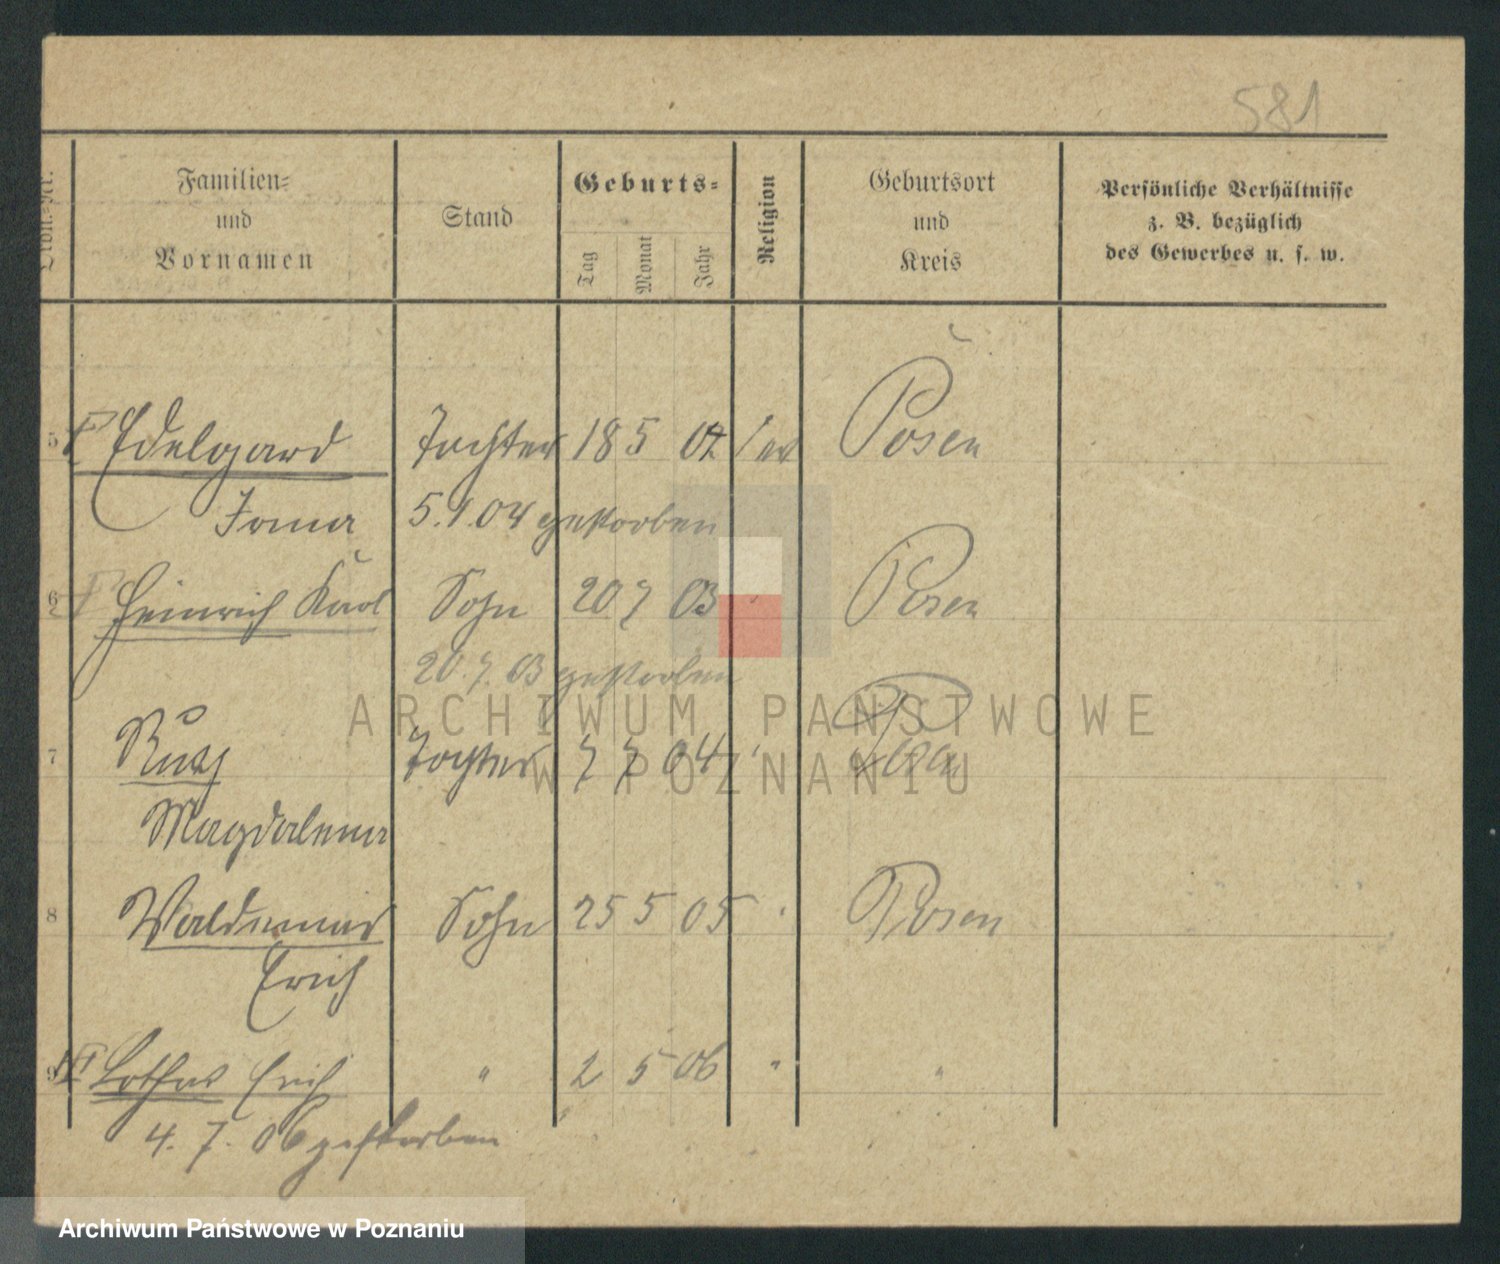 581
Familien=
und
Vornamen
Stand
Geburts=
Tag
Monat
Jahr
Religion
Geburtsort
und
Kreis
Persönliche Verhältnisse
z. B. bezüglich
des Gewerbes u. s. w.
5 Edelgard Tochter 18 5 02 ev Posen
Irma 5.1.04 gestorben
6 Heinrich Karl Sohn 20 7 03 Posen
20.7.03 gestorben
7 Ruth Tochter 7 7 04
Magdalena
8 Waldemar Sohn 25 5 05 Posen
Erich
9 Lothar Erich " 2 5 06 " "
4. 7. 06 gestorben
ARCHIWUM PAŃSTWOWE
W POZNANIU
Archiwum Państwowe w Poznaniu